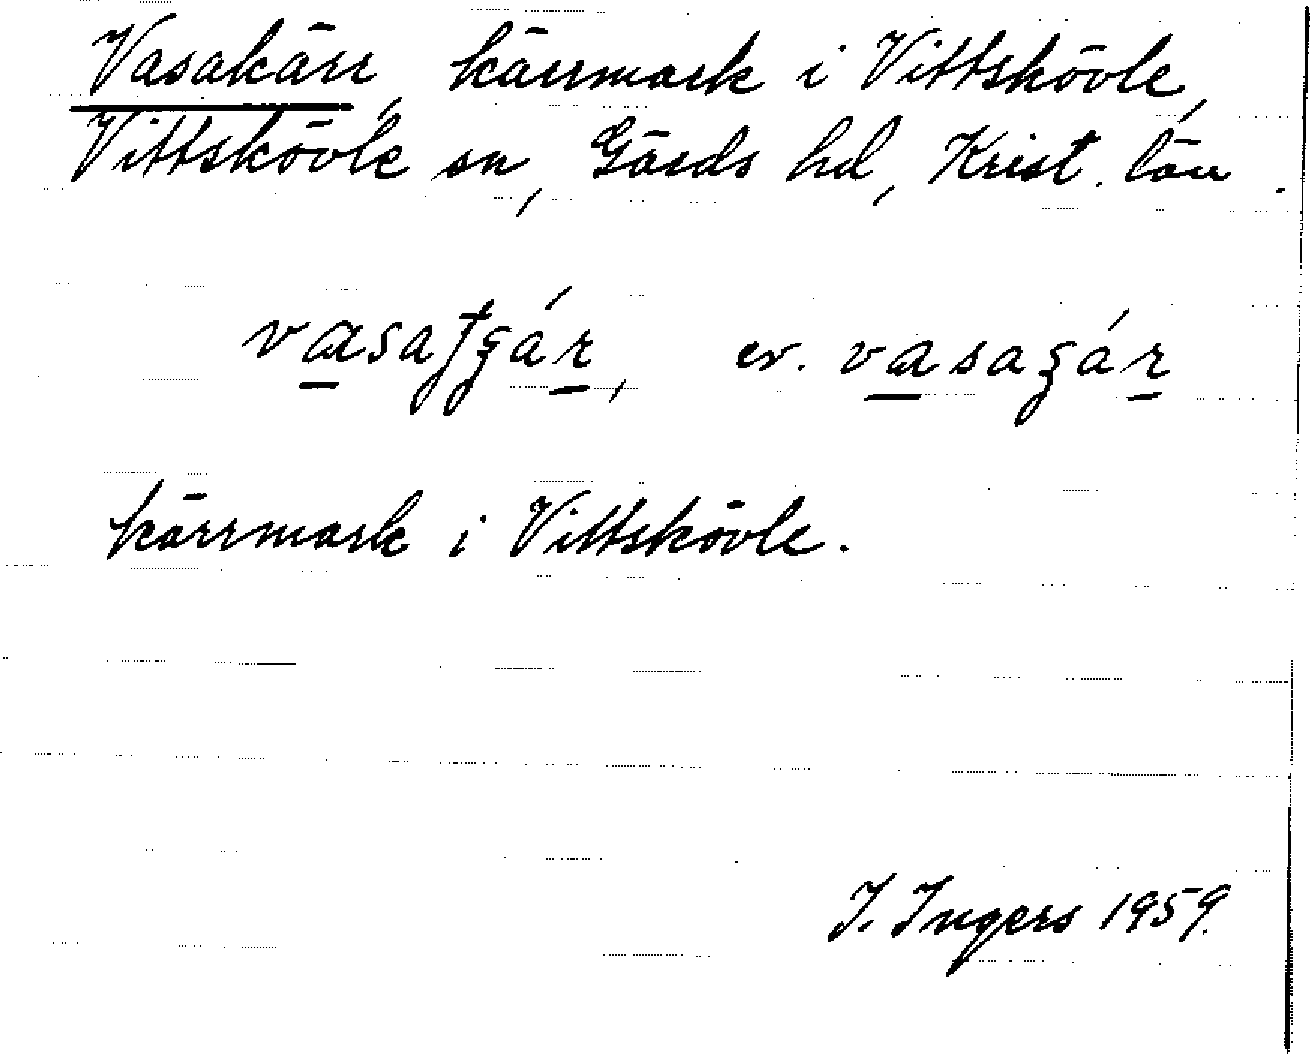 Vasakärr, kärrmark i Vittskövle,
Vittskövle sn, Gärds hd, Krist. län.
ev.
kärrmark i Vittskövle.
I. Ingers 1959.